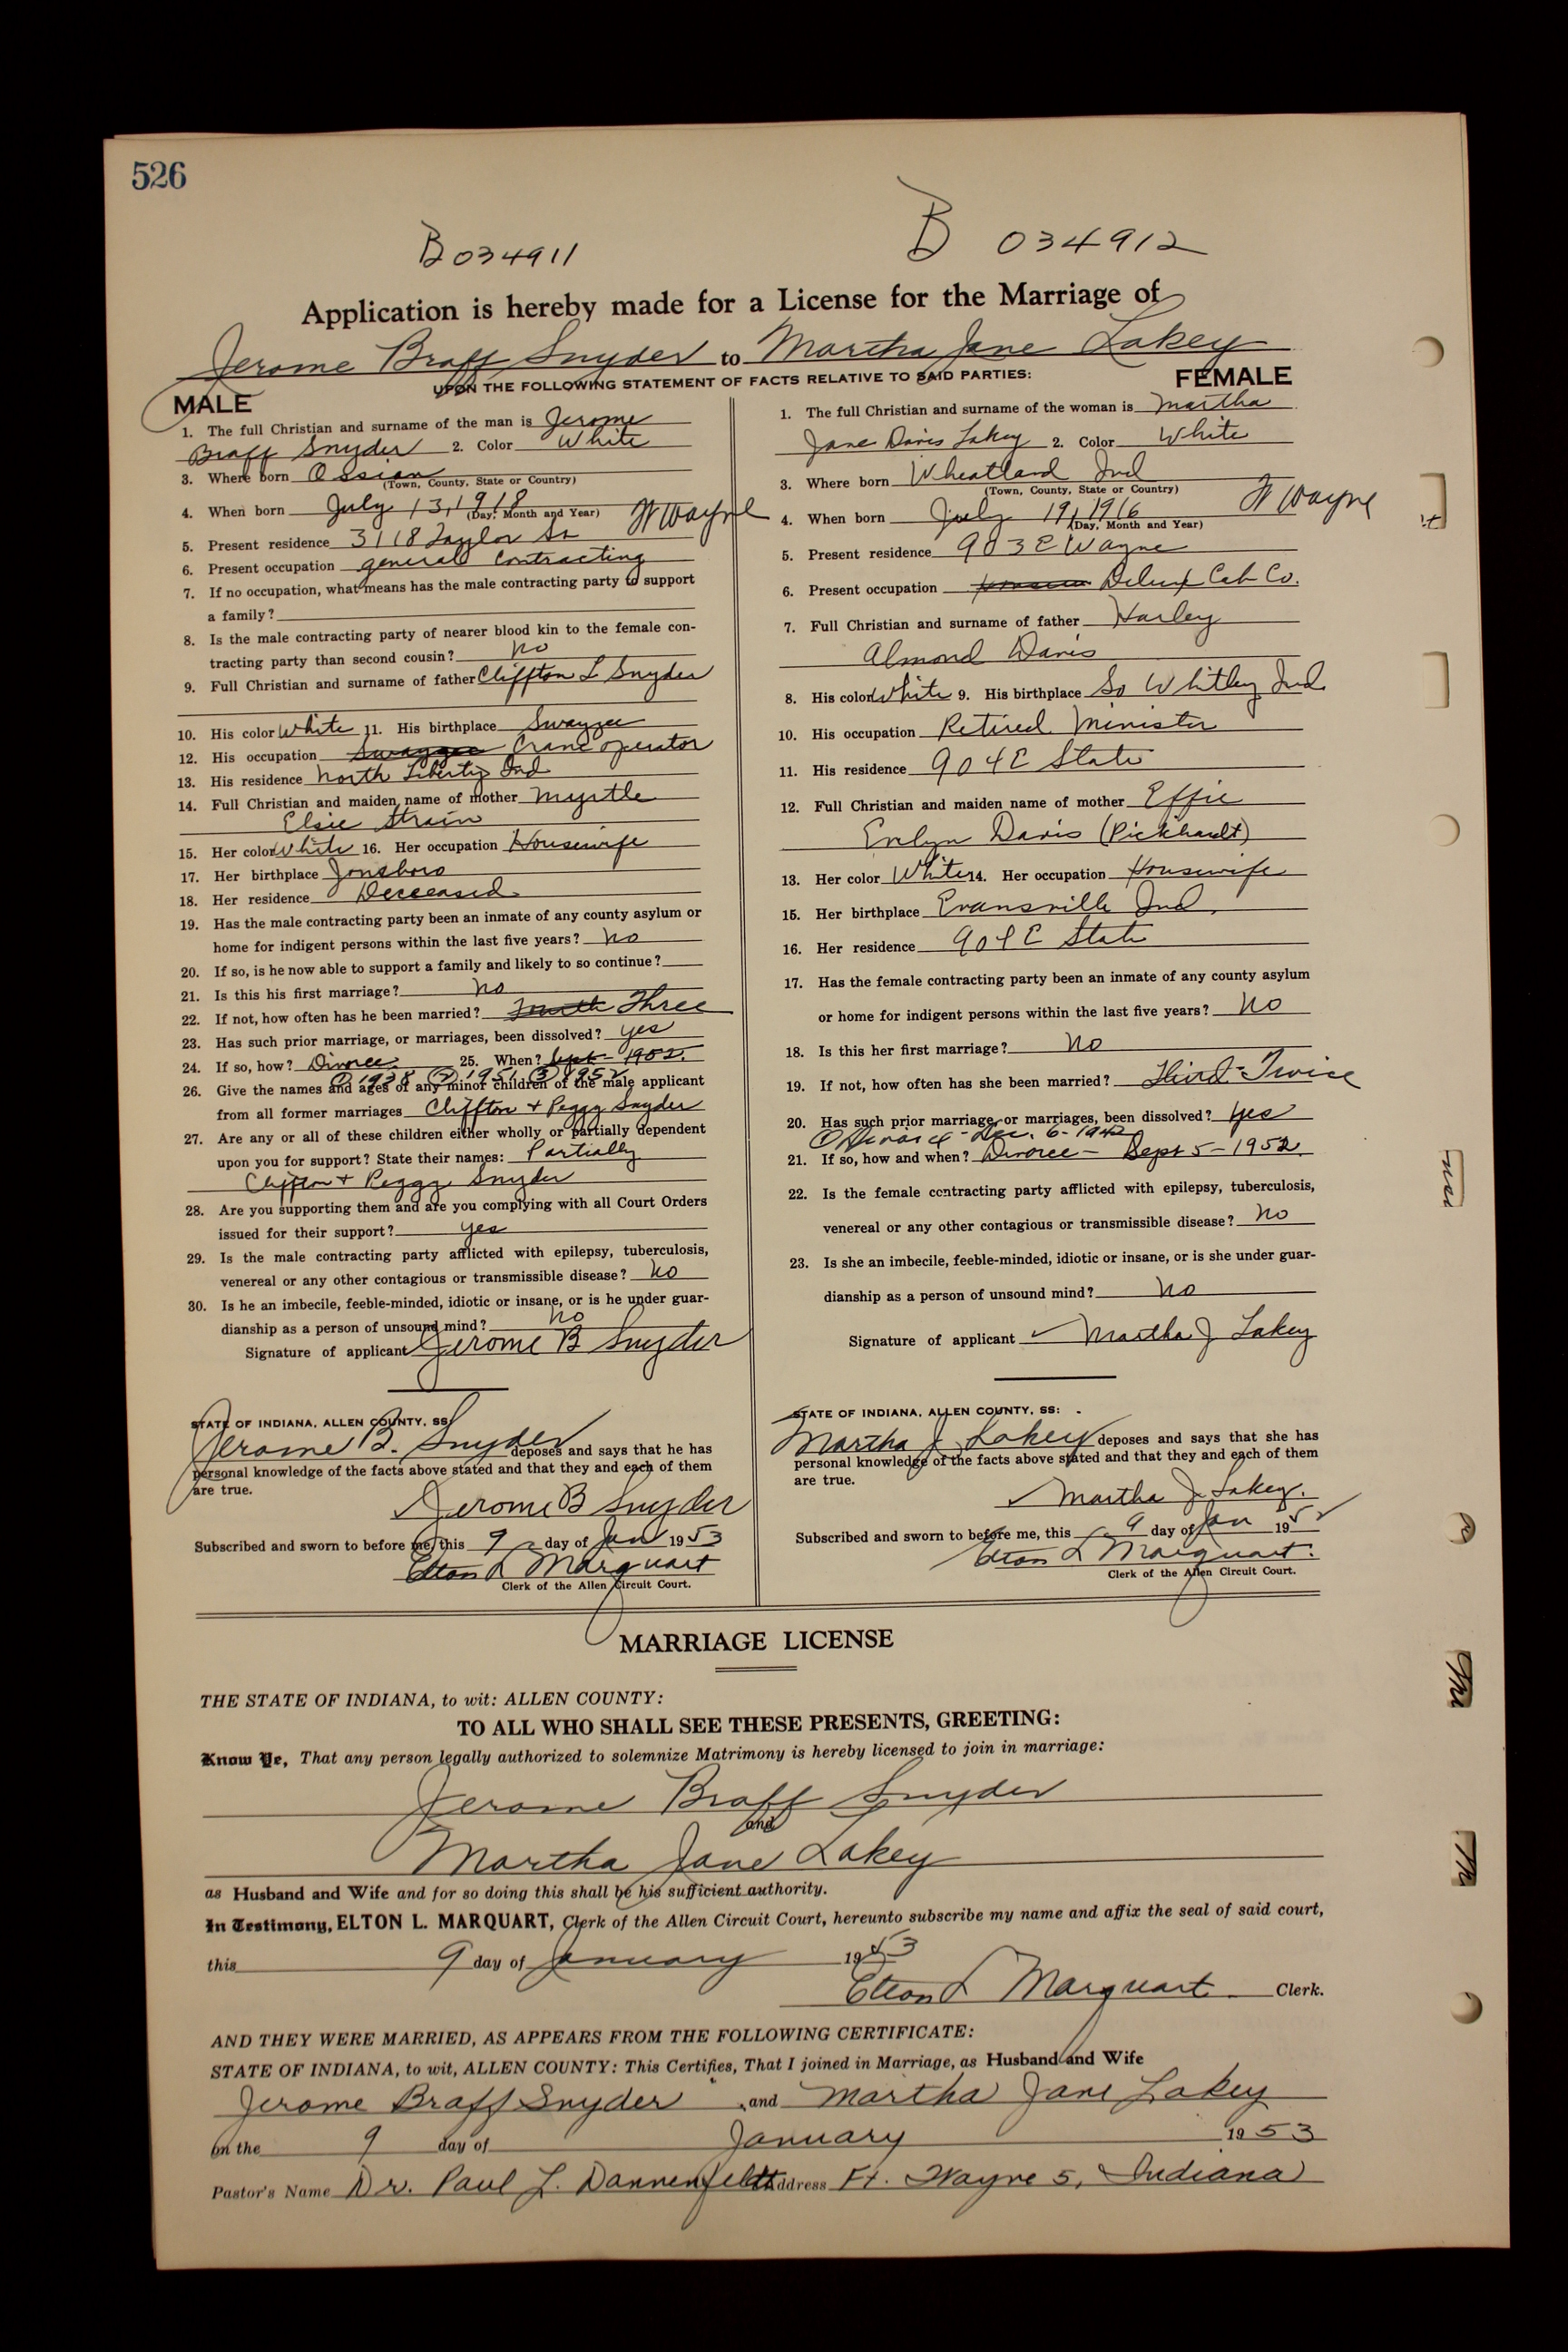 526
B 034911
B 034912
Application is hereby made for a License for the Marriage of
Jerome Braff Snyder to Martha Jane Lakey
UPON THE FOLLOWING STATEMENT OF FACTS RELATIVE TO SAID PARTIES:
MALE
1. The full Christian and surname of the man is Jerome
Braff Snyder 2. Color White
3. Where born Ossian
(Town, County, State or Country)
4. When born July 13, 1918
(Day, Month and Year)
Ft Wayne
5. Present residence 3118 Taylor St
6. Present occupation general contracting
7. If no occupation, what means has the male contracting party to support
a family?
8. Is the male contracting party of nearer blood kin to the female con-
tracting party than second cousin? no
9. Full Christian and surname of father Cliffton L Snyder
10. His color White 11. His birthplace Swayzee
12. His occupation Swayzee Crane operator
13. His residence North Liberty Ind
14. Full Christian and maiden name of mother Myrtle
Elsie Strain
15. Her color White 16. Her occupation Housewife
17. Her birthplace Jonsboro
18. Her residence Deceased
19. Has the male contracting party been an inmate of any county asylum or
home for indigent persons within the last five years? no
20. If so, is he now able to support a family and likely to so continue?
21. Is this his first marriage? no
22. If not, how often has he been married? Three
23. Has such prior marriage, or marriages, been dissolved? yes
24. If so, how? Divorce 25. When? Sept - 1952.
① 1938 ② 1951 ③ 1952
26. Give the names and ages of any minor children of the male applicant
from all former marriages Cliffton + Peggy Snyder
27. Are any or all of these children either wholly or partially dependent
upon you for support? State their names: Partially
Cliffton + Peggy Snyder
28. Are you supporting them and are you complying with all Court Orders
issued for their support? yes
29. Is the male contracting party afflicted with epilepsy, tuberculosis,
venereal or any other contagious or transmissible disease? no
30. Is he an imbecile, feeble-minded, idiotic or insane, or is he under guar-
dianship as a person of unsound mind? no
Signature of applicant Jerome B Snyder
STATE OF INDIANA, ALLEN COUNTY, SS:
Jerome B. Snyder deposes and says that he has
personal knowledge of the facts above stated and that they and each of them
are true.
Jerome B Snyder
Subscribed and sworn to before me, this 9 day of Jan 1953
Elton L Marquart
Clerk of the Allen Circuit Court.
FEMALE
1. The full Christian and surname of the woman is Martha
Jane Davis Lakey 2. Color White
3. Where born Wheatland Ind
(Town, County, State or Country)
4. When born July 19, 1916
(Day, Month and Year)
Ft Wayne
5. Present residence 903 E Wayne
6. Present occupation Delux Cab Co.
7. Full Christian and surname of father Harley
Almond Davis
8. His color White 9. His birthplace So Whitley Ind.
10. His occupation Retired Minister
11. His residence 904 E State
12. Full Christian and maiden name of mother Effie
Evelyn Davis (Pickhardt)
13. Her color White 14. Her occupation Housewife
15. Her birthplace Evansville Ind.
16. Her residence 904 E State
17. Has the female contracting party been an inmate of any county asylum
or home for indigent persons within the last five years? no
18. Is this her first marriage? no
19. If not, how often has she been married? Third - Twice
20. Has such prior marriage, or marriages, been dissolved? yes
① Divorce - Dec. 6 - 1942
21. If so, how and when? Divorce - Sept 5 - 1952.
22. Is the female contracting party afflicted with epilepsy, tuberculosis,
venereal or any other contagious or transmissible disease? no
23. Is she an imbecile, feeble-minded, idiotic or insane, or is she under guar-
dianship as a person of unsound mind? no
Signature of applicant Martha J Lakey
STATE OF INDIANA, ALLEN COUNTY, SS:
Martha J. Lakey deposes and says that she has
personal knowledge of the facts above stated and that they and each of them
are true.
Martha J Lakey.
Subscribed and sworn to before me, this 9 day of Jan 195
Elton L Marquart.
Clerk of the Allen Circuit Court.
MARRIAGE LICENSE
THE STATE OF INDIANA, to wit: ALLEN COUNTY:
TO ALL WHO SHALL SEE THESE PRESENTS, GREETING:
Know Ye, That any person legally authorized to solemnize Matrimony is hereby licensed to join in marriage:
Jerome Braff Snyder
and
Martha Jane Lakey
as Husband and Wife and for so doing this shall be his sufficient authority.
In Testimony, ELTON L. MARQUART, Clerk of the Allen Circuit Court, hereunto subscribe my name and affix the seal of said court,
this 9 day of January 1953
Elton L Marquart Clerk.
AND THEY WERE MARRIED, AS APPEARS FROM THE FOLLOWING CERTIFICATE:
STATE OF INDIANA, to wit, ALLEN COUNTY: This Certifies, That I joined in Marriage, as Husband and Wife
Jerome Braff Snyder and Martha Jane Lakey
on the 9 day of January 1953
Pastor's Name Dr. Paul L. Dannenfeldt Address Ft. Wayne 5, Indiana